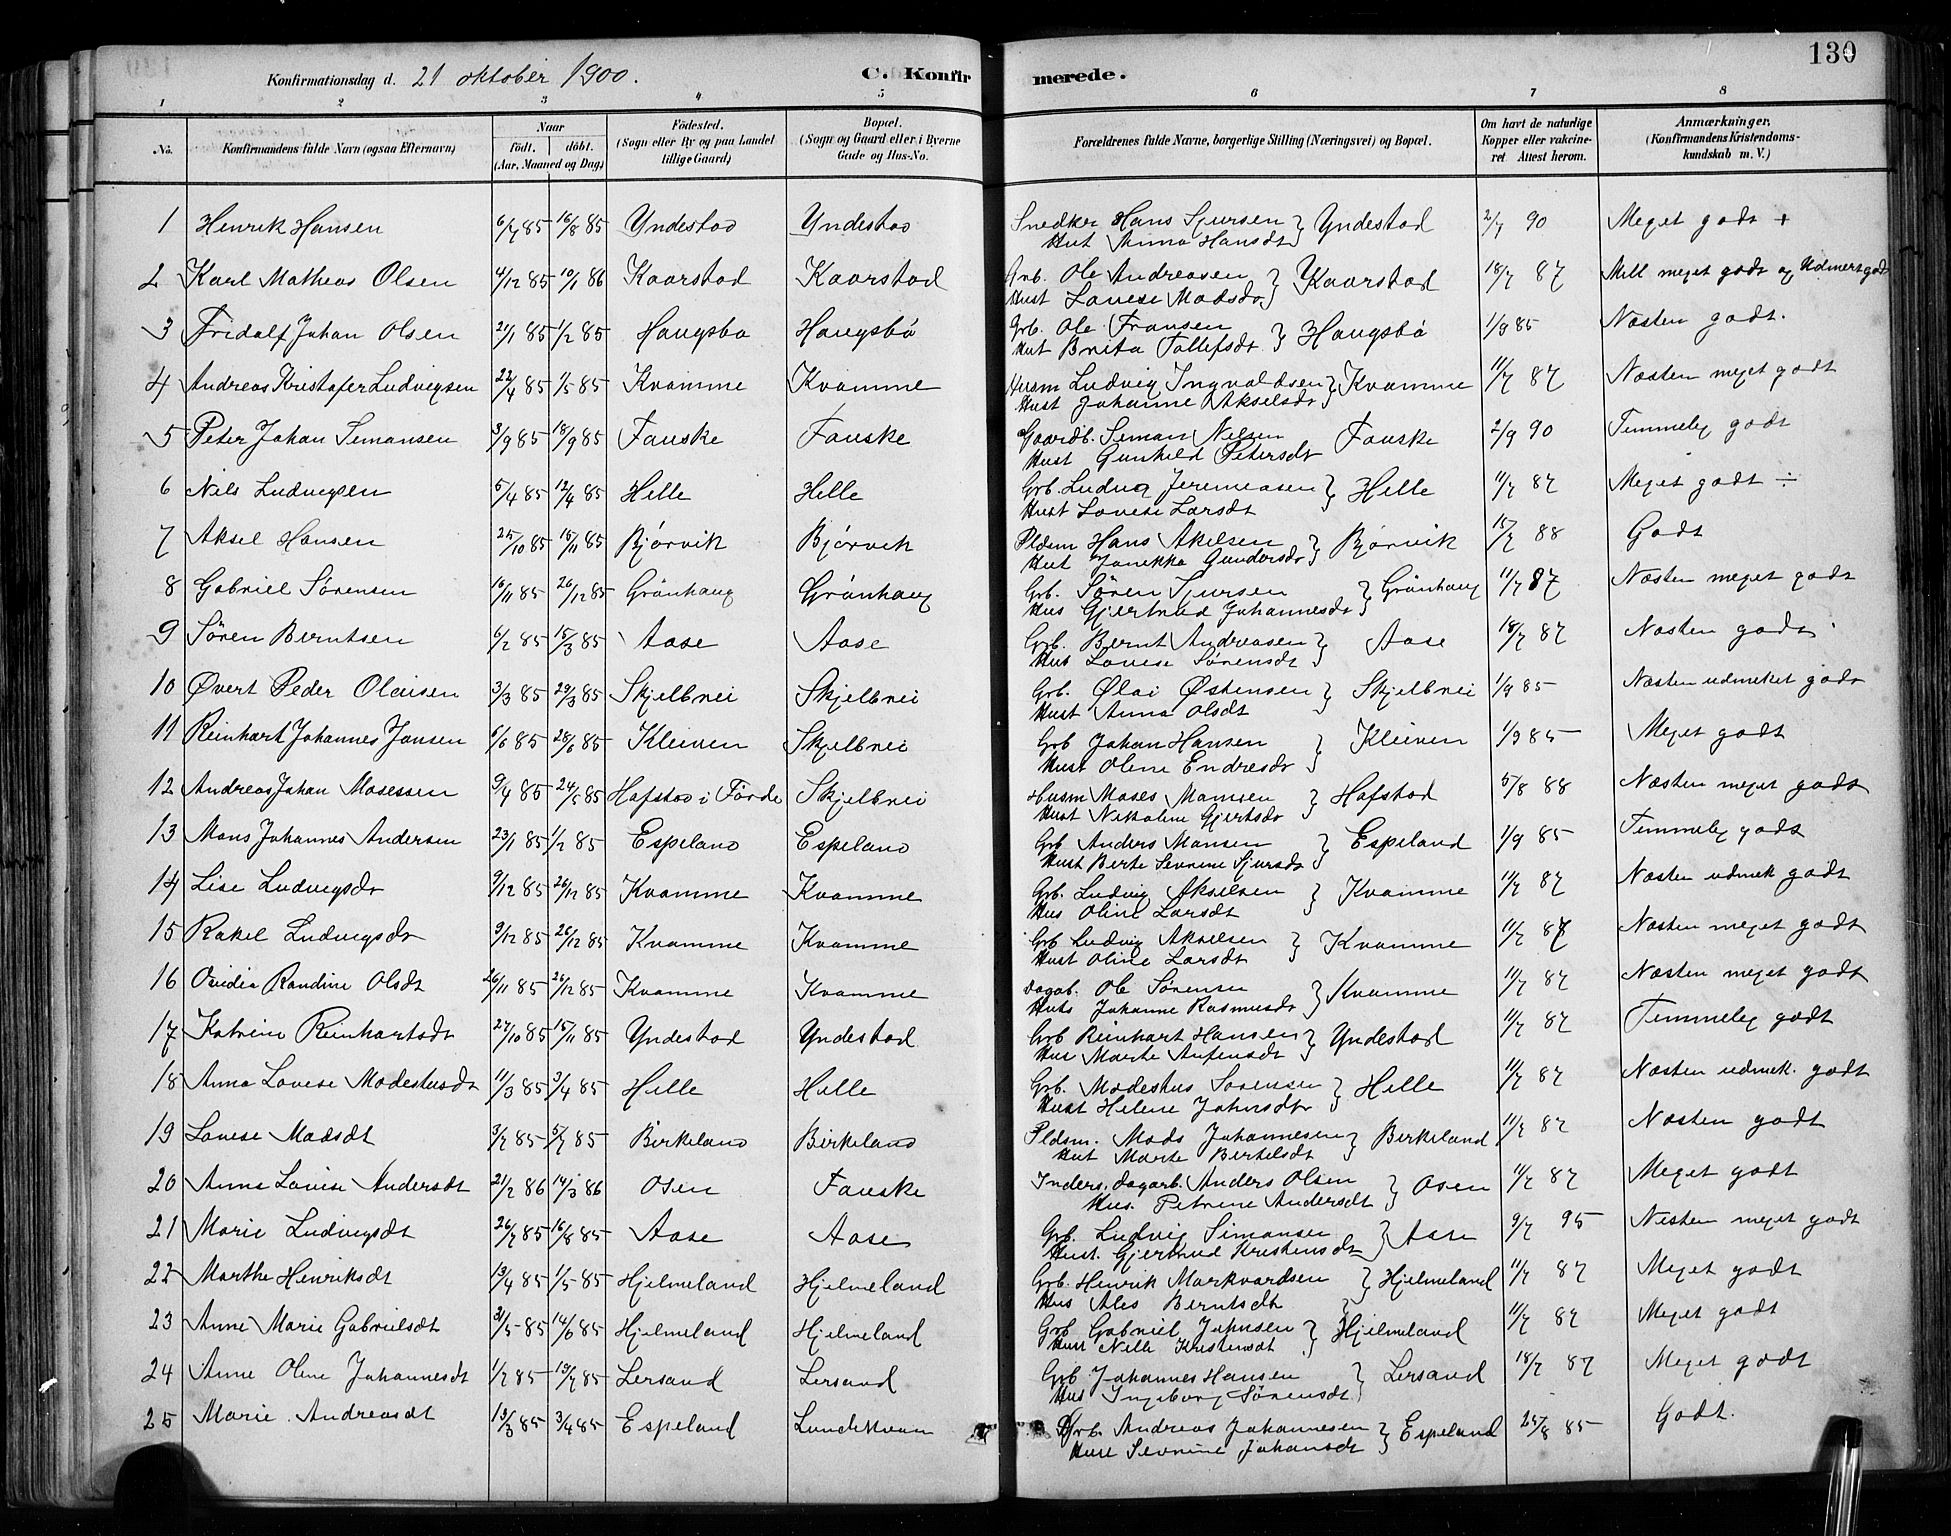 130
Konfirmationsdag d. 21 oktober 1900. C. Konfirmerede.
1 2 3 4 5 6 7 8
No. Konfirmandens fulde Navn (ogsaa Efternavn) Naar født. døbt. (Aar, Maaned og Dag) Fødested. (Sogn eller By og paa Landet tillige Gaard) Bopæl. (Sogn og Gaard eller i Byerne Gade og Hus-No. Forældrenes fulde Navne, borgerlige Stilling (Næringsvei) og Bopæl. Om havt de naturlige Kopper eller vakcineret Attest herom. Anmærkninger. (Konfirmandens Kristendomskundskab m. V.)
1 Henrik Hansen 6/7 85 16/8 85 Yndestad Yndestad Snedker Hans Sjursen } Yndestad 2/7 90 Meget godt +
Hust Anna Hansdt
2 Karl Mathias Olsen 4/12 85 10/1 86 Kaarstad Kaarstad Arb. Ole Andreasen } Kaarstad 18/7 87 Mell meget godt og Udmert godt
Hust Lovise Madsdr
3 Fridalf Johan Olsen 21/1 85 1/2 85 Haugsbø Haugsbø Grb. Ole Fransen } Haugsbø 1/9 85 Næsten godt.
Hust Brita Tollefsdt
4 Andreas Kristofer Ludvigsen 22/4 85 1/5 85 Kvamme Kvamme Ludvig Ingvaldsen } Kvamme 11/7 87 Næsten meget godt
Hust Johanne Akselsdr
5 Peter Johan Simonsen 3/9 85 18/9 85 Fauske Fauske Gaardb. Simon Nilsen Fauske 2/9 90 Temmelig godt
Hust Gunhild Petersdt
6 Nils Ludvigsen 5/4 85 12/4 85 Hille Hille Grb. Ludvig Jeremiasen } Hille 11/7 87 Meget godt ÷
Hust Lovise Larsdt
7 Aksel Hansen 25/10 85 15/11 85 Bjørvik Bjørvik Pldsm Hans Akelsen } Bjørvik 15/7 88 Godt
Hust Janikka Gundersdr
8 Gabriel Sørensen 16/11 85 26/12 85 Grønhaug Grønhaug Grb. Søren Sjursen } Grønhaug 11/7 87 Næsten meget godt
Hus Gjertrud Johannesdr
9 Søren Berntsen 6/2 85 15/3 85 Aase Aase Grb. Bernt Andreasen } Aase 18/7 87 Næsten godt
Hus Lovise Sørensdt
10 Øvert Peder Olaisen 3/3 85 29/3 85 Skjelbrei Skjelbrei Grb. Olai Østensen } Skjelbrei 1/9 85 Næsten udmeket godt
Hust Anna Olsdt
11 Reinhart Johannes Jansen 6/6 85 28/6 85 Kleiven Skjelbrei Grb Johan Hansen } Kleiven 1/9 85 Meget godt
Hust Oline Endresdr
12 Andreas Johan Mosessen 9/4 85 24/5 85 Hafstad i Førde Skjelbrei Husm Moses Monsen } Hafstad 5/8 88 Næsten meget godt
Hust Nikoline Gjertsdr
13 Mons Johannes Andersen 23/1 85 1/2 85 Espeland Espeland Grb Anders Monsen } Espeland 1/9 85 Temmelig godt
Hust Berte Sevrine Sjursdt
14 Lise Ludvigsdr 9/12 85 26/12 85 Kvamme Kvamme Grb. Ludvig Akselsen } Kvamme 11/7 87 Næsten udmek godt
Hus Oline Larsdt
15 Rakel Ludvigsdt 9/12 85 26/12 85 Kvamme Kvamme Grb Ludvig Akselsen } Kvamme 11/7 87 Næsten meget godt
Hust Oline Larsdt
16 Ovidia Randine Olsdt 26/11 85 26/12 85 Kvamme Kvamme Dagab. Ole Sørensen } Kvamme 11/7 87 Næsten meget godt
Huts Johanne Rasmusdr
17 Katrine Reinhartsdt 27/10 85 15/11 85 Yndestad Yndestad Grb Reinhart Hansen } Yndestad 11/7 87 Temmelig godt
Hus Marte Anfensdt
18 Anna Lovise Modestusdt 11/3 85 3/4 85 Hille Hille Grb. Modestus Sørensen } Hille 11/7 87 Næsten udmek. godt
Hust Helene Johnsdtr
19 Lovise Madsdt 3/7 85 5/7 85 Birkeland Birkeland Pldsm. Mads Johannesen } Birkeland 11/7 87 Næsten godt
Hust Marte Bertelsdt
20 Anne Lovise Andersdt 21/2 86 14/3 86 Osen Fauske Inders. dagarb. Anders Olsen } Osen 11/7 87 Meget godt
Hus. Petrine Andersdt
21 Marie Ludvigsdt 26/7 85 16/8 85 Aase Aase Grb. Ludvig Simonsen } Aase 9/7 95 Nesten meget godt
Hust. Gjertrud Kristensdt
22 Marthe Henriksdt 13/4 85 1/5 85 Hjelmeland Hjelmeland Grb. Henrik Markvardsen } Hjelmeland 11/7 87 Meget godt
Hus Ales Berntsdt
23 Anne Marie Gabrielsdt 31/5 85 14/6 85 Hjelmeland Hjelmeland Grb Gabriel Johnsen } Hjelmeland 11/7 87 Meget godt
Hus Nille Kristensdt
24 Anne Oline Johannesdt 1/7 85 19/7 85 Lersand Lersand Grb Johannes Hansen } Lersand 18/7 87 Meget godt
Hus Ingeborg Sørensdt
25 Marie Andreasdt 13/3 85 3/4 85 Espeland Lundekvam Grb. Andreas Johannesen } Espeland 25/8 85 Godt.
Huse Sevrine Johansdt